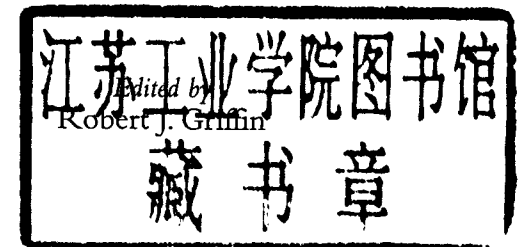 江苏工业学院图书馆
Edited by
Robert J. Griffin
藏书章